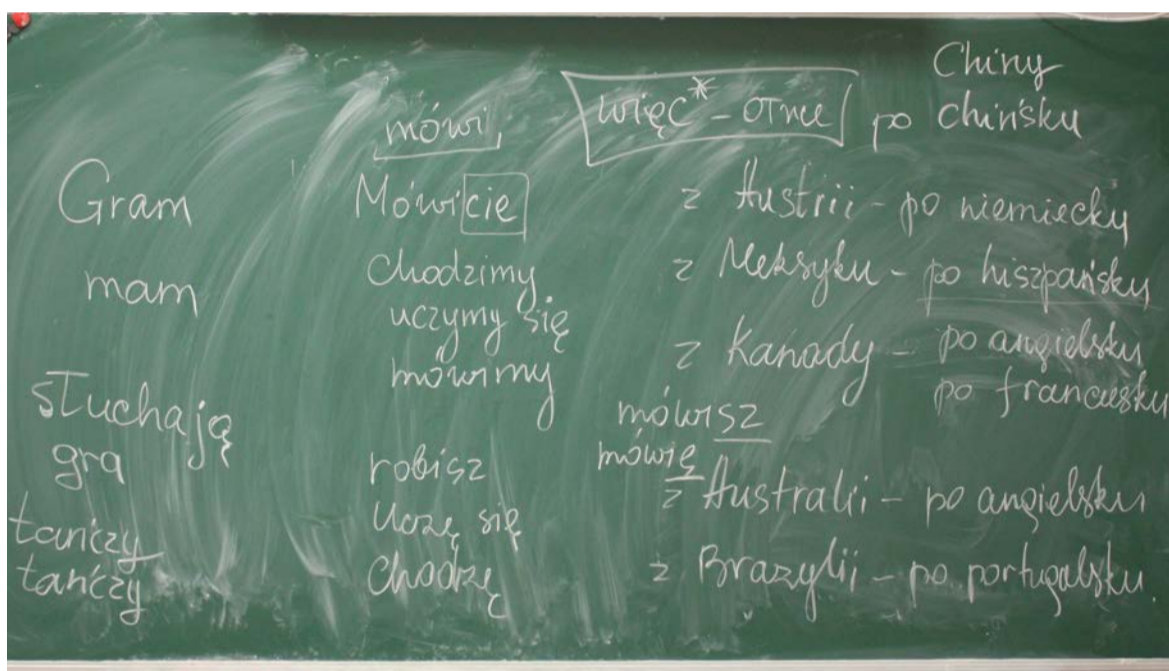 Gram
mam
słuchają
grą
tańczy
tańczy
mówi,
Mówicie
chodzimy
uczymy się
mówimy
robisz
Uczę się
chodzę
więc* - otne
Chiny
po chińsku
z Austrii - po niemiecku
z Meksyku - po hiszpańsku
z Kanady - po angielsku
po francusku
mówisz
mówię
z Australii - po angielsku
z Brazylii - po portugalsku.